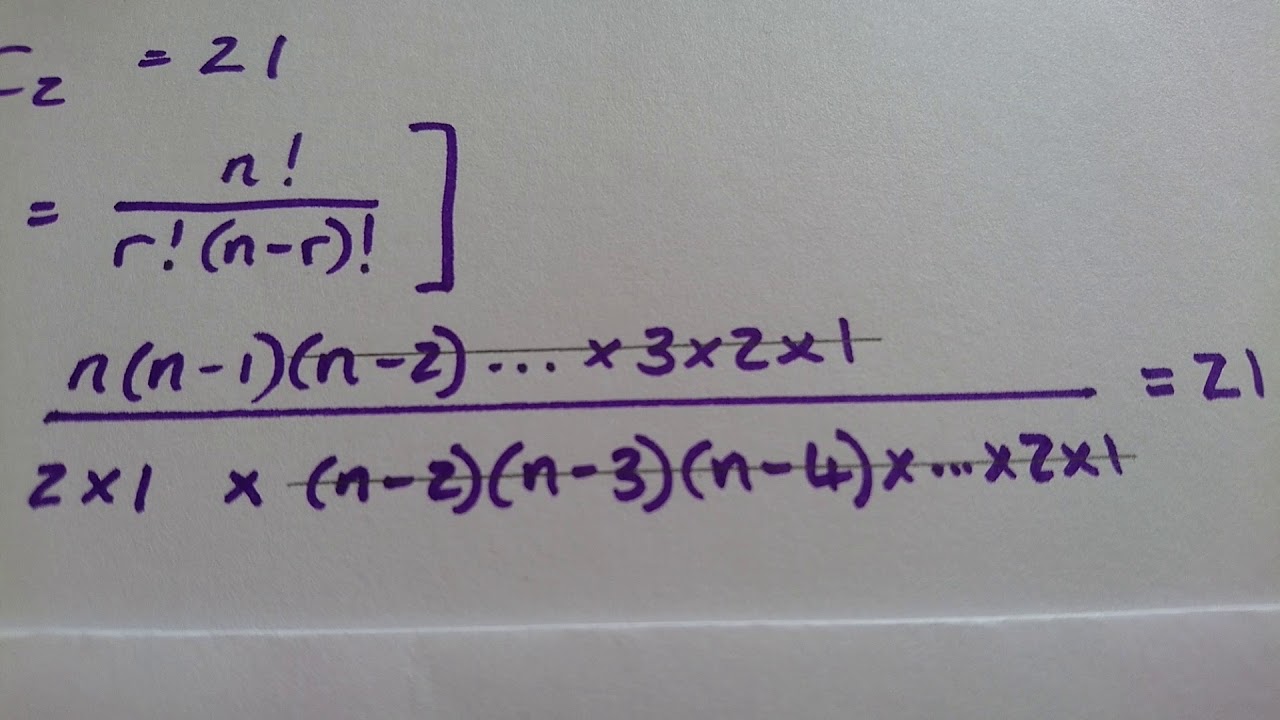 C₂ = 21
= n! / r!(n-r)! ]
n(n-1)(n-2)...×3×2×1 / 2×1 × (n-2)(n-3)(n-4)×...×2×1 = 21